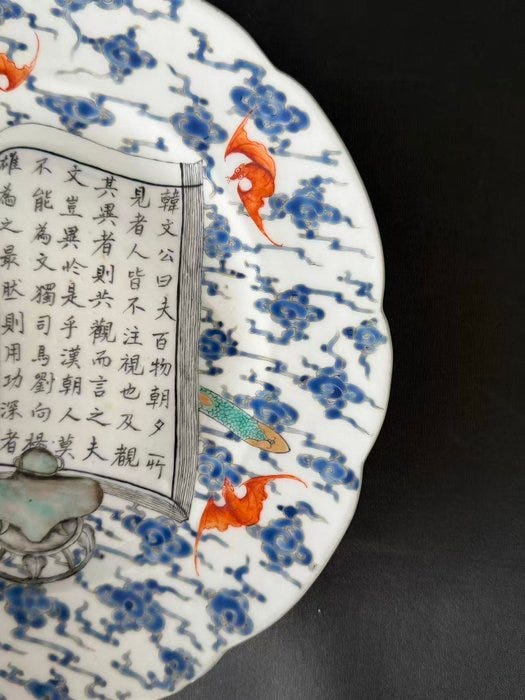 韓文公曰夫百物朝夕所
見者人皆不注視也及覩
其異者則共觀而言之夫
文豈異扵是乎漢朝人莫
不能為文獨司馬劉向楊
雄為之最然則用功深者